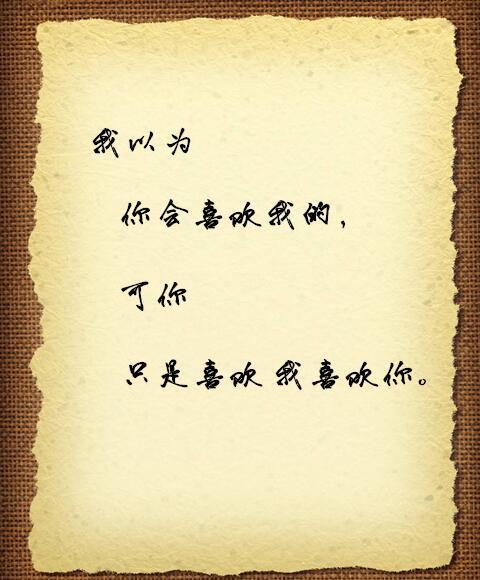 我以为
你会喜欢我的，
可你
只是喜欢 我喜欢你。